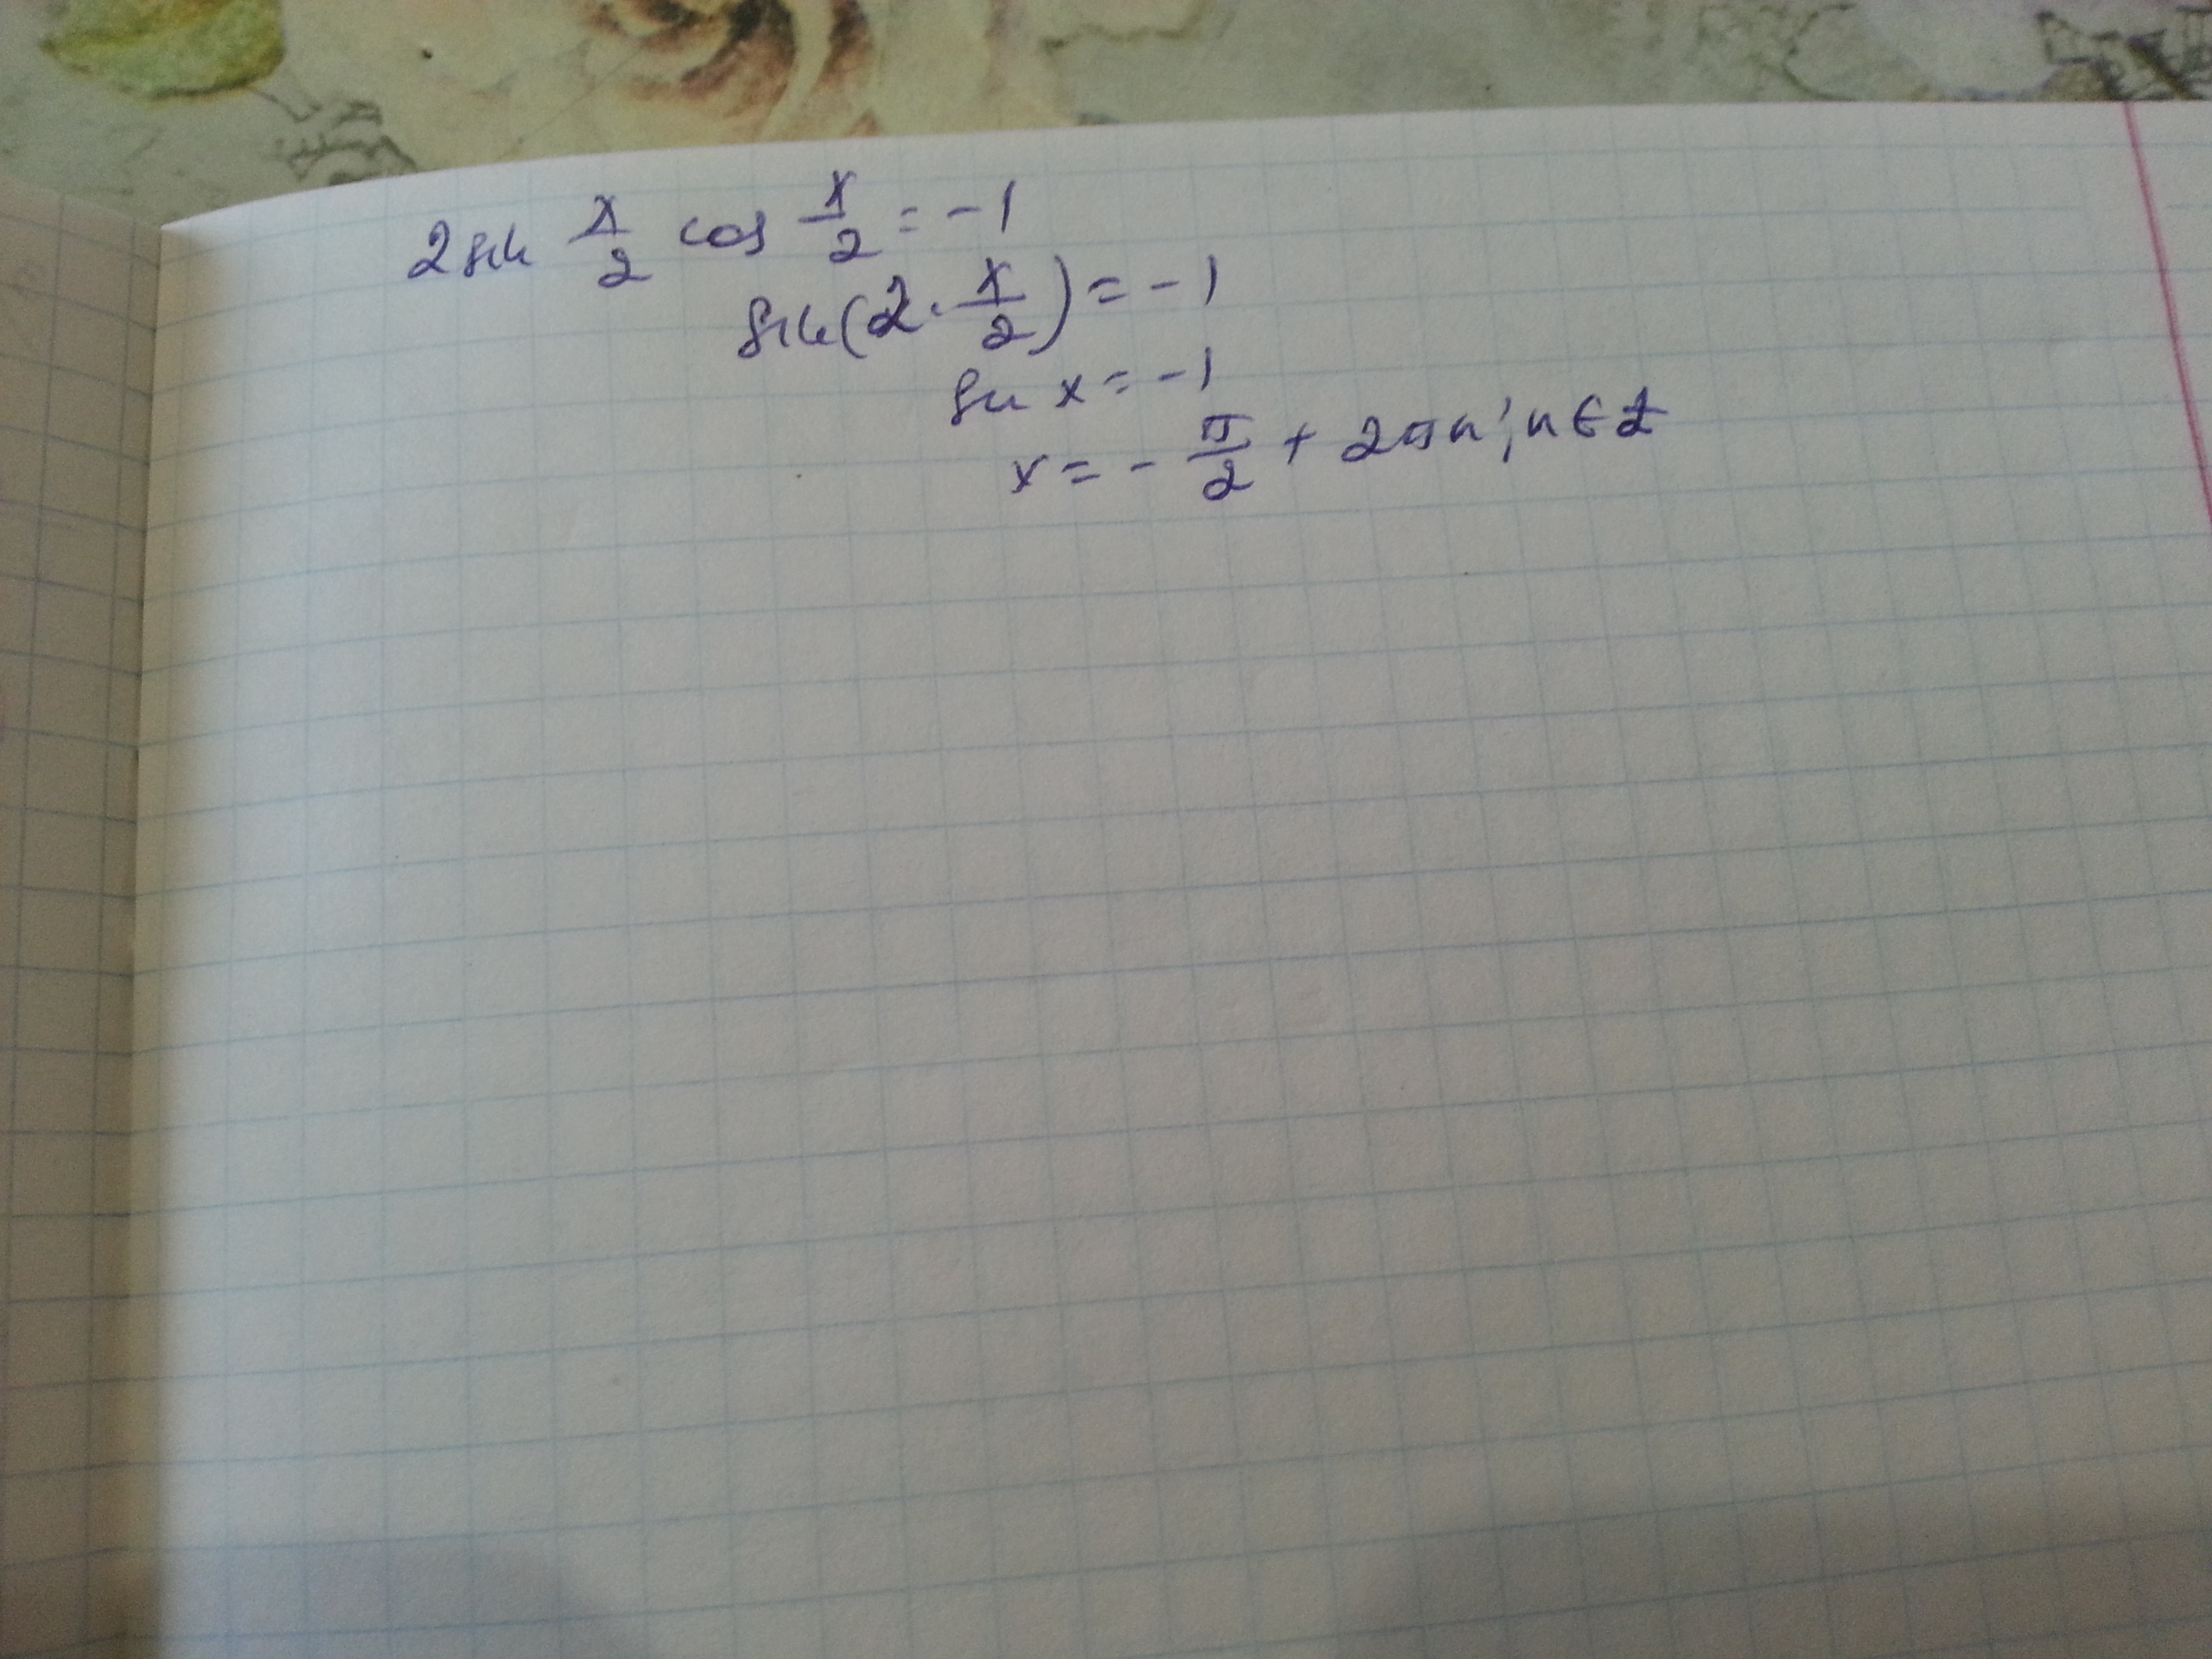 2 sin x/2 cos x/2 = -1
sin(2·x/2) = -1
sin x = -1
x = -π/2 + 2πn; n∈Z